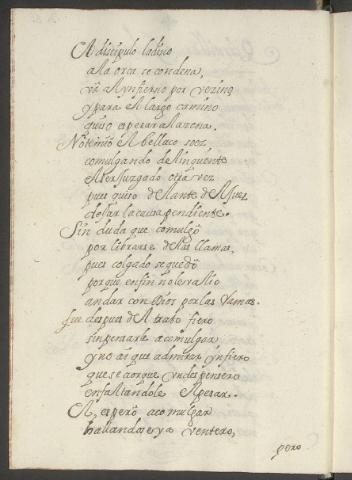 A discipulo ladino
a la orca se condena,
va al ynfierno por vezino
y para el largo camino
quiso esperar a la zena.
No temio el bellaco soez
comulgando delinquente
el ser juzgado otra vez
pues quiso delante del juez
dejar la causa pendiente.
Sin duda que comulgò
por librarse de las llamas,
pues colgado se quedò
porque en fin no le valio
andar con Dios por las ramas.
fue despues del trato fiero
sin pensarlo a comulgar
y no ai que admirar ynfiero
que se aorque yndespensero
en faltandole el pesar.
El, esperò a comulgar
hallandose ya ventero,
pero